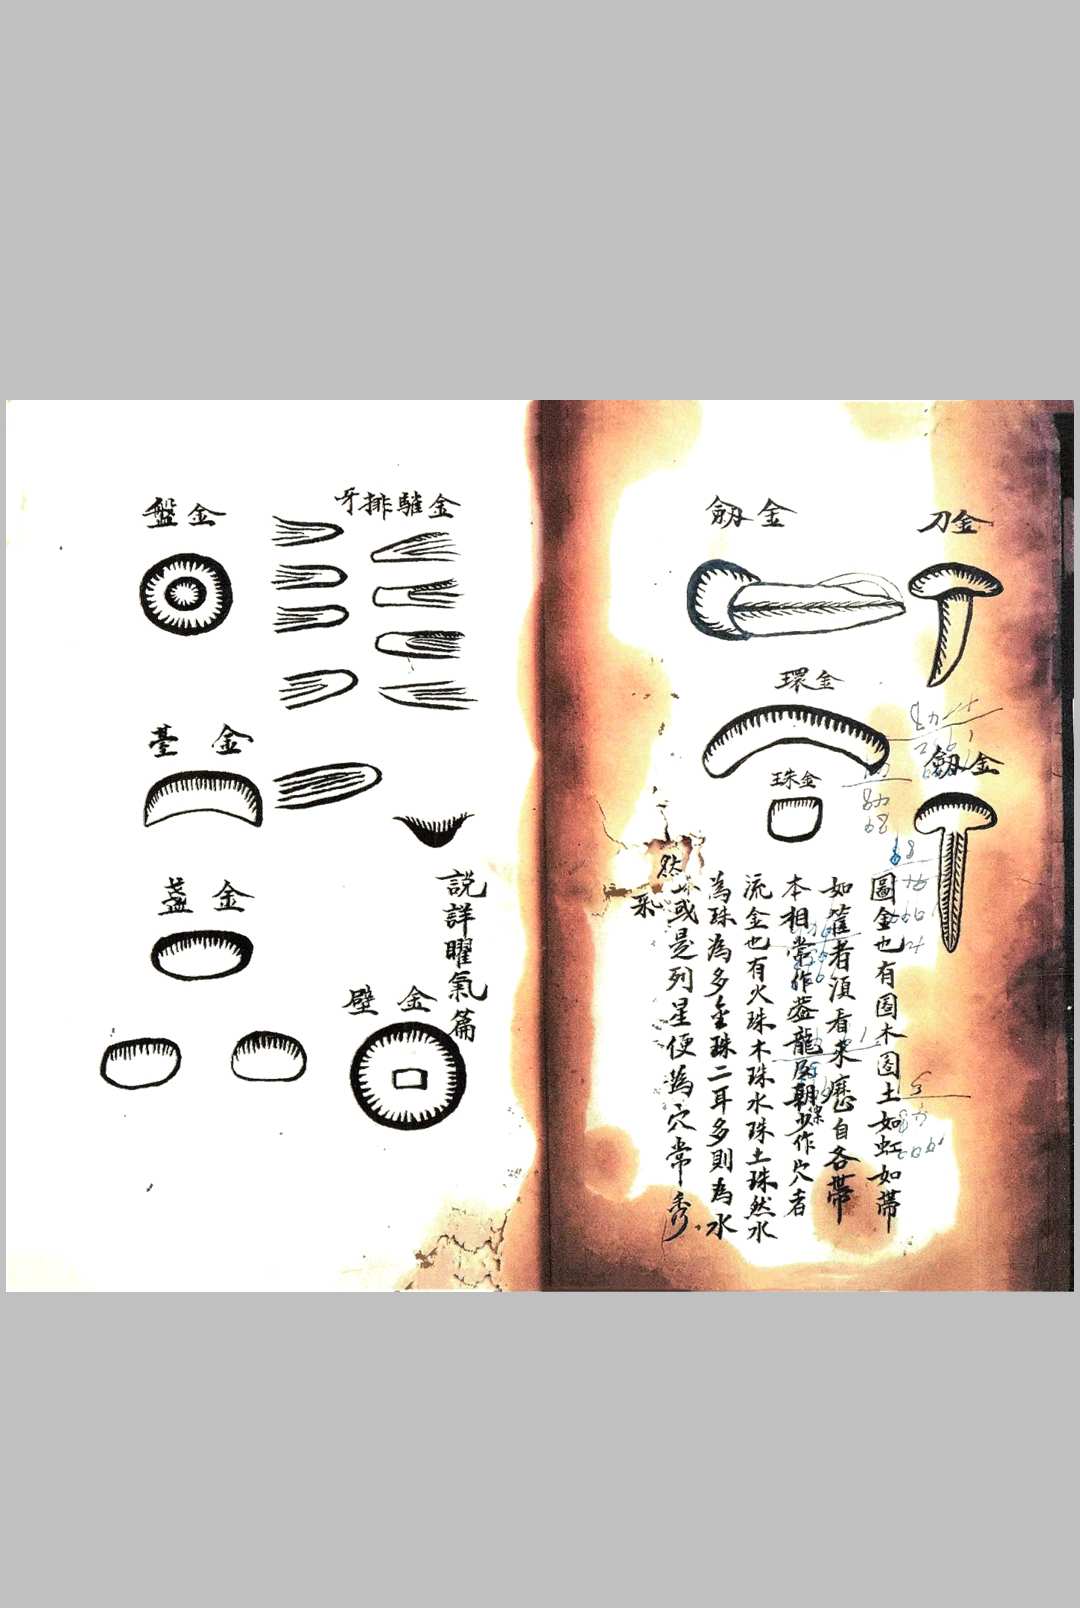 金刀
金劔
金劔
金環
金珠
圖金也有圖木圖土如虹如帶
如舊者須看來歷自各帶
本相常作蓋龍及朝少作穴者
流金也有火珠木珠水珠土珠然水
為珠為多金珠二耳多則為水
或是列星便為穴常秀
然
金驊排牙
說詳曜氣篇
金璧
金盤
金臺
金盞